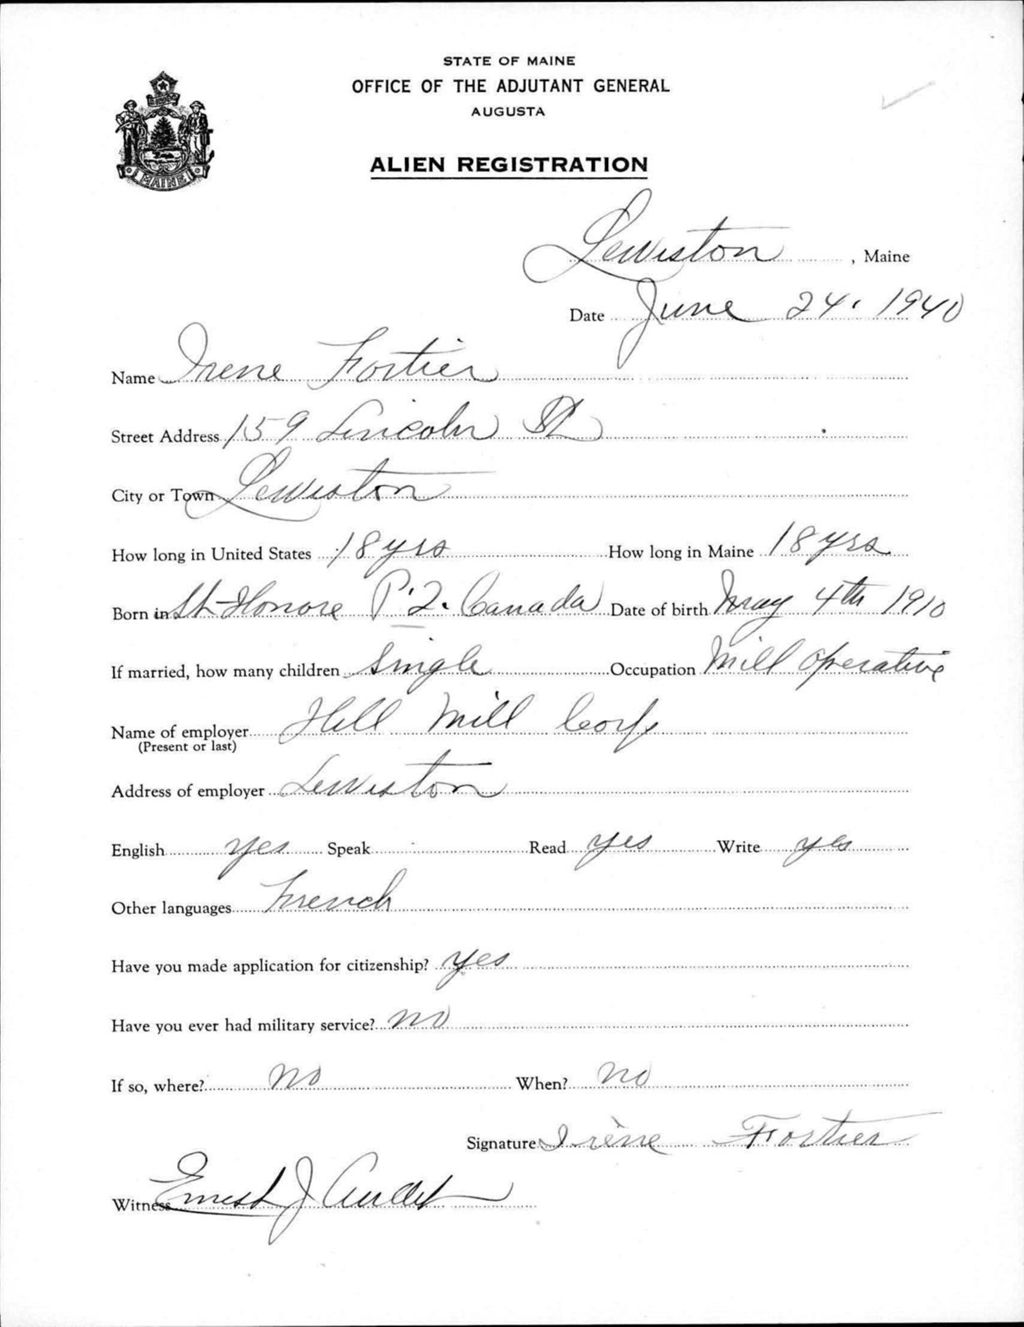 STATE OF MAINE
OFFICE OF THE ADJUTANT GENERAL
AUGUSTA
ALIEN REGISTRATION
MAINE
Lewiston, Maine
Date June 24, 1940
Name Irene Fortier
Street Address 159 Lincoln St
City or Town Lewiston
How long in United States 18 yrs How long in Maine 18 yrs
Born in St-Honore P.Q. Canada Date of birth May 4th 1910
If married, how many children Single Occupation Mill Operative
Name of employer Hill Mill Corp
(Present or last)
Address of employer Lewiston
English yes Speak Read yes Write yes
Other languages French
Have you made application for citizenship? yes
Have you ever had military service? no
If so, where? no When? no
Signature Irène Fortier
Witness Ernest J Audet